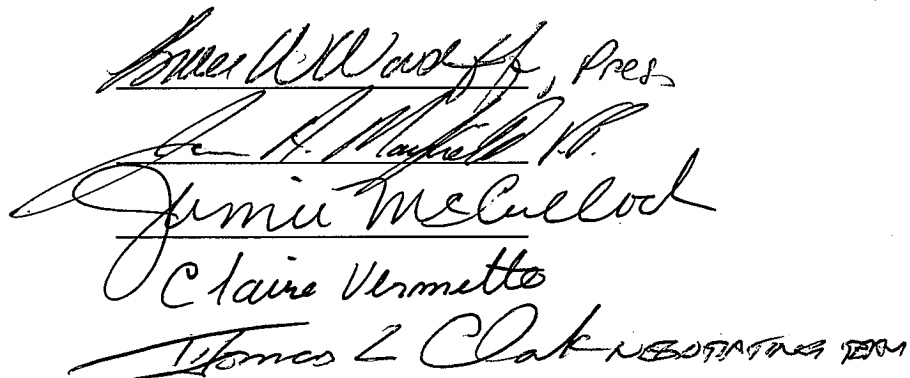 Bruce W Woodruff, Pres
H. Mayfield V.P.
Jamie McCulloch
Claire Vermette
Thomas L Clark NEGOTIATING TEAM